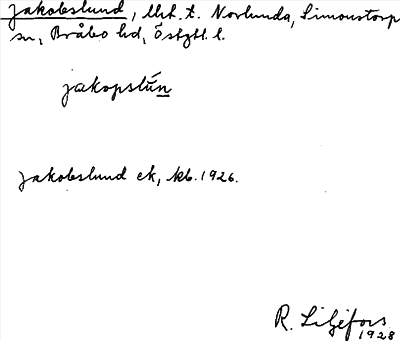 Jakobslund, lht. t. Norlunda, Simonstorp
sn, Bråbo hd, Östgtl. l.
jakopslún
Jakobslund ek, kb. 1926.
R. Liljefors
1928